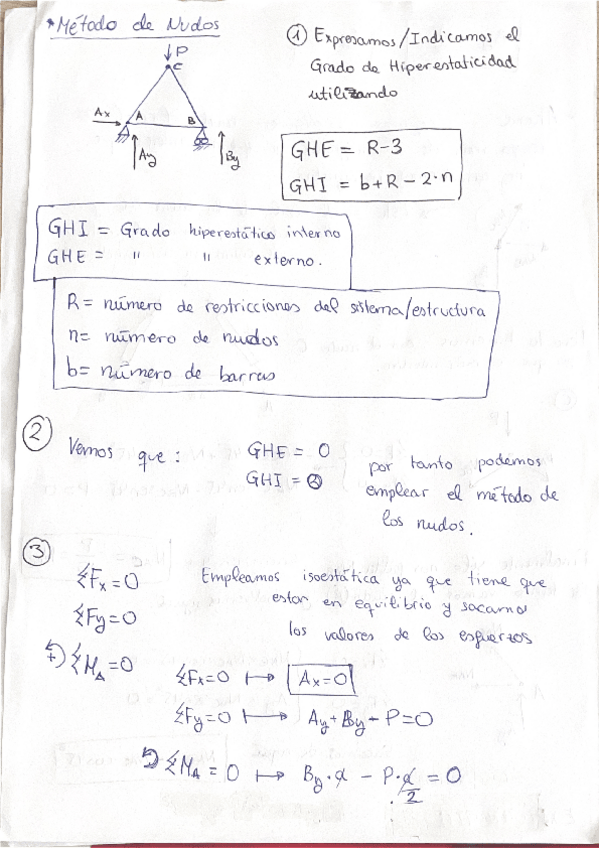 * Método de Nudos
① Expresamos/Indicamos el
Grado de Hiperestaticidad
utilizando
↓P
C
Ax
A
B
Ay
By
GHE = R-3
GHI = b+R-2·n
GHI = Grado hiperestático interno
GHE = " " externo.
R= número de restricciones del sistema/estructura
n= número de nudos
b= número de barras
②
Vemos que :
GHE = 0
GHI = 0
por tanto podemos
emplear el método de
los nudos.
③
ΣFx=0
ΣFy=0
ΣM_A=0
Empleamos isoestática ya que tiene que
estar en equilibrio y sacamos
los valores de los esfuerzos
ΣFx=0 ↦ Ax=0
ΣFy=0 ↦ Ay+By-P=0
ΣM_A = 0 ↦ By·d - P·d/2 = 0